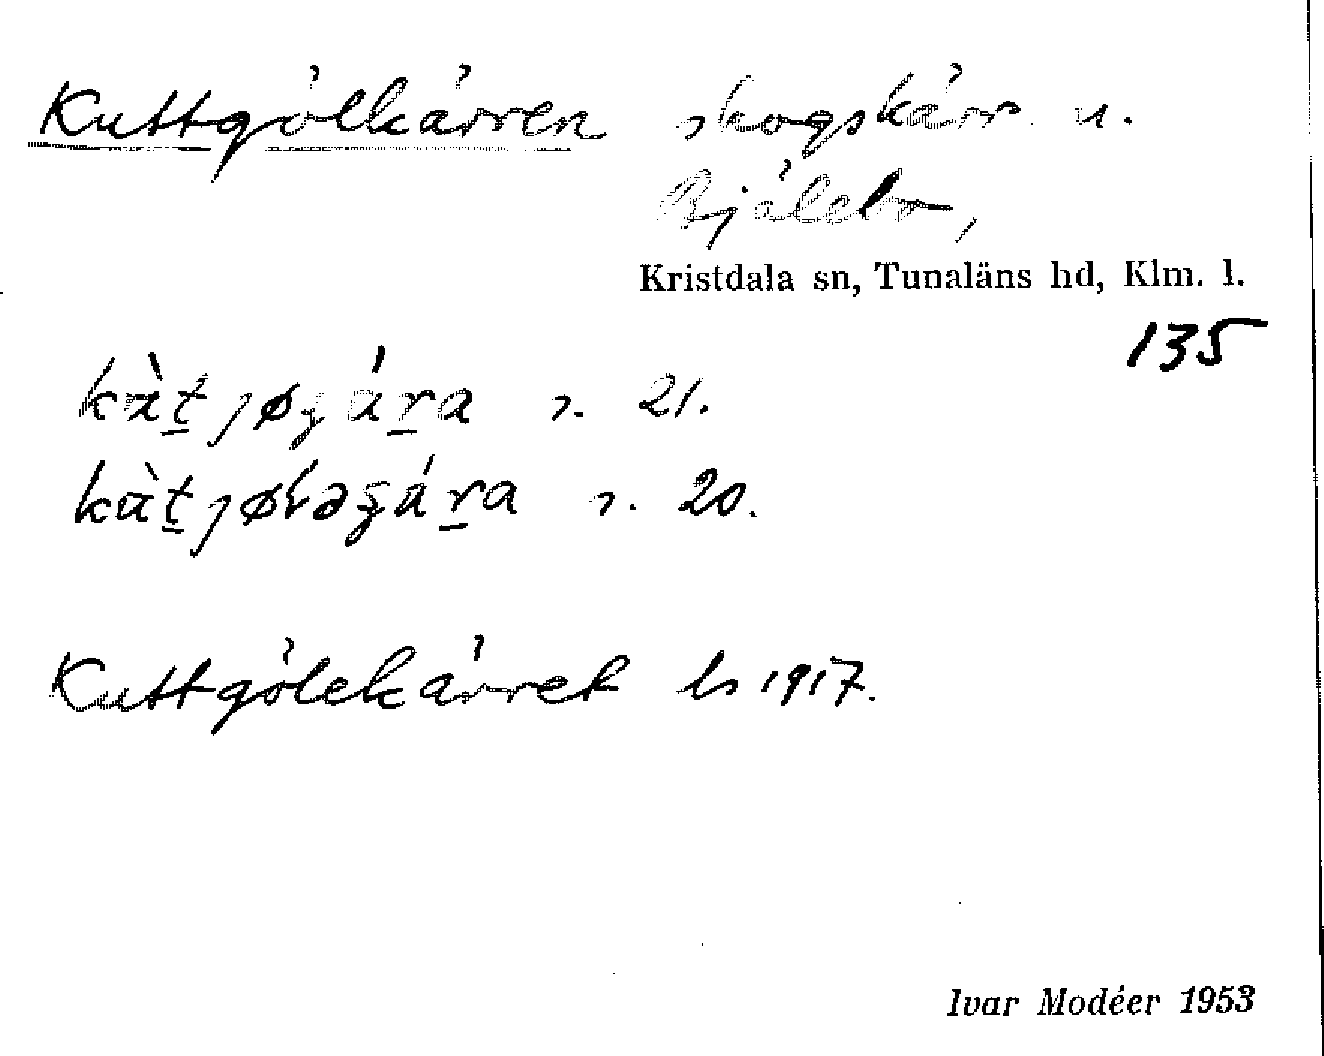 Kuttgölkärren skogskärr u.
Bjälebo,
Kristdala sn, Tunaläns hd, Klm. l.
135
21.
20.
Kuttgölekärret ls 1917.
Ivar Modéer 1953